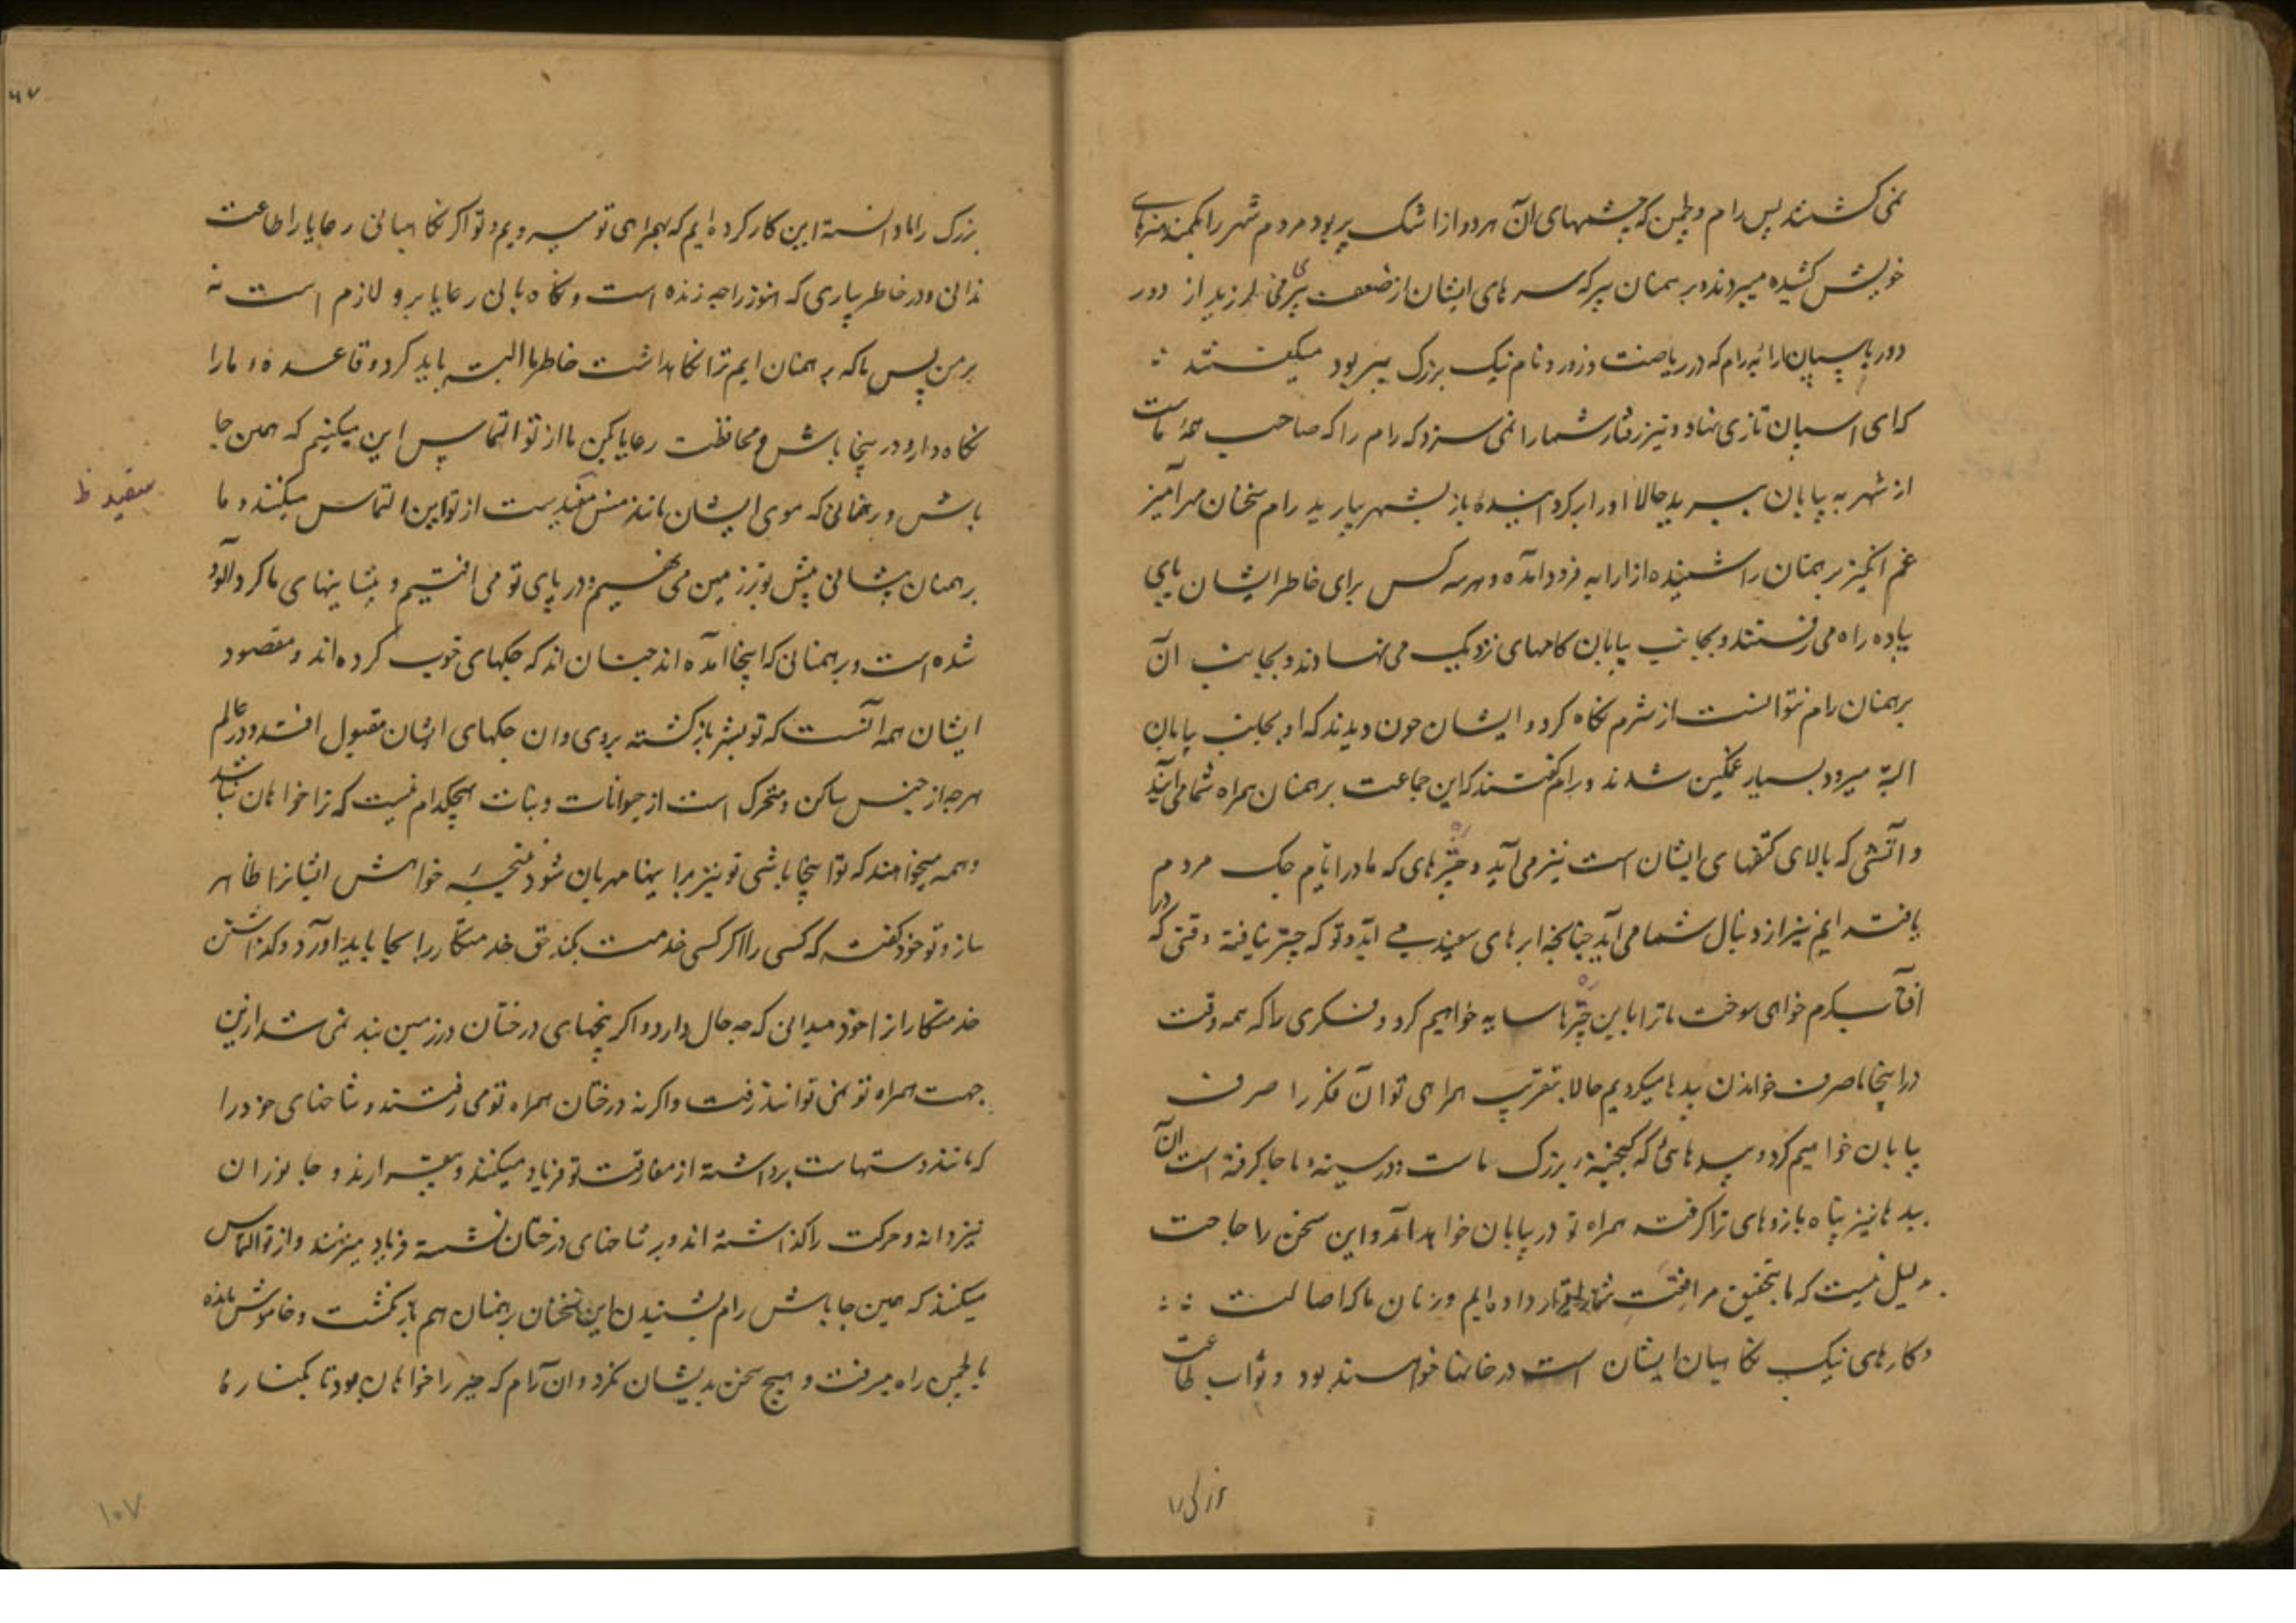 نمی کشتند پس رام و لچمن که چشمهای آن هر دو از اشک پر بود مردم شهر را بکمند هنرهای
خویش کشیده میبردند و برهمنان پیر که سرهای ایشان از ضعف پیری می لرزید از دور
دور باسپان ارابه رام که در ریاضت و زور و نام نیک بزرگ پیر بود میگفتند
که ای اسپان تازی نهاد و تیز رفتار شما را نمی سزد که رام را که صاحب همه ماست
از شهر به بیابان ببرید حالا او را برگردانیده باز بشهر بیارید رام سخنان مهرآمیز
غم انگیز برهمنان را شنیده از ارابه فرود آمده و هر سه کس برای خاطر ایشان پای
پیاده راه می رفتند و بجانب بیابان کامهای نزدیک می نهادند و بجانب آن
برهمنان رام نتوانست از شرم نکاه کرد و ایشان چون دیدند که او بجانب بیابان
البته میرود بسیار غمگین شدند و برام گفتند که این جماعت برهمنان همراه شما می آیند
و آتشی که بالای کتفهای ایشان است نیز می آید و چترهای که ما در ایام جک مردم
یافته ایم نیز از دنبال شما می آید چنانچه ابرهای سفید می آید و تو که چتر نیافته وقتی که در
آفتاب گرم خواهی سوخت ما ترا باین چترها سایه خواهیم کرد و فکری را که همه وقت
در اینجا صرف خواندن بیدها میکردیم حالا بتقریب همراهی تو آن فکر را صرف
بیابان خواهیم کرد و بیدهائی که گنجینه بزرگ ماست و در سینه ما جا گرفته است آن
بیدها نیز پناه بازوهای ترا گرفته همراه تو در بیابان خواهد آمد و این سخن را حاجت
دلیل نیست که ما بتحقیق مرافقت شما قرار داده ایم و زنان ما که اصالت
و کارهای نیک نکاهبان ایشان است در خانها خواهند بود و ثواب طاعت
بزرگ را
بزرک را مادانسته این کار کرده ایم که بهمراهی تو میرویم و تو اکر نکاهبانی رعایا را طاعت
ندانی و در خاطر بیاری که هنوز راجه زنده است و نکاه بانی رعایا برو لازم است نه
بر من پس ما که برهمنان ایم ترا نکاهداشت خاطر ما البته باید کرد و قاعده ما را
نکاه دار و در اینجا باش و محافظت رعایا بکن ما از تو التماس این میکنیم که همین جا
باش و برهمنانی که موی ایشان مانند هنس سفیدست از تو این التماس میکنند و ما
برهمنان پیشانی پیش تو بر زمین می نهیم و در پای تو می افتیم و پیشانیهای ما کرد آلود
شده است و برهمنانی که اینجا آمده اند چنان اند که جکهای خوب کرده اند و مقصود
ایشان همه آنست که تو بشهر باز گشته بروی و آن جکهای ایشان مقبول افتد و در عالم
هر چه از جنس ساکن و متحرک است از حیوانات و نبات هیچکدام نیست که ترا خواهان نباشد
و همه میخواهند که تو اینجا باشی تو نیز بر اینها مهربان شو و نتیجه خواهش ایشانرا ظاهر
ساز و تو خود گفته که کسی را اکر کسی خدمت بکند حق خدمتکار را بجا باید آورد و گذاشتن
خدمتکار از خود میدانی که چه حال دارد و اکر بیخهای درختان در زمین بند نمی شد ازین
جهت همراه تو نمی توانند رفت واکر نه درختان همراه تو می رفتند و شاخهای خود را
که مانند دستهاست برداشته از مفارقت تو فریاد میکنند و بیقرارند و جانوران
نیز دانه و حرکت را گذاشته اند و بر شاخهای درختان نشسته فریاد میزنند و از تو التماس
میکنند که همین جا باش رام بشنیدن این سخنان برهمنان هم باز نگشت و خاموش مانده
با لچمن راه میرفت و هیچ سخن بدیشان نکرد و آن رام که خیر را خواهان بود تا بکناره
سفید ظ
۶۷
۱۰۷